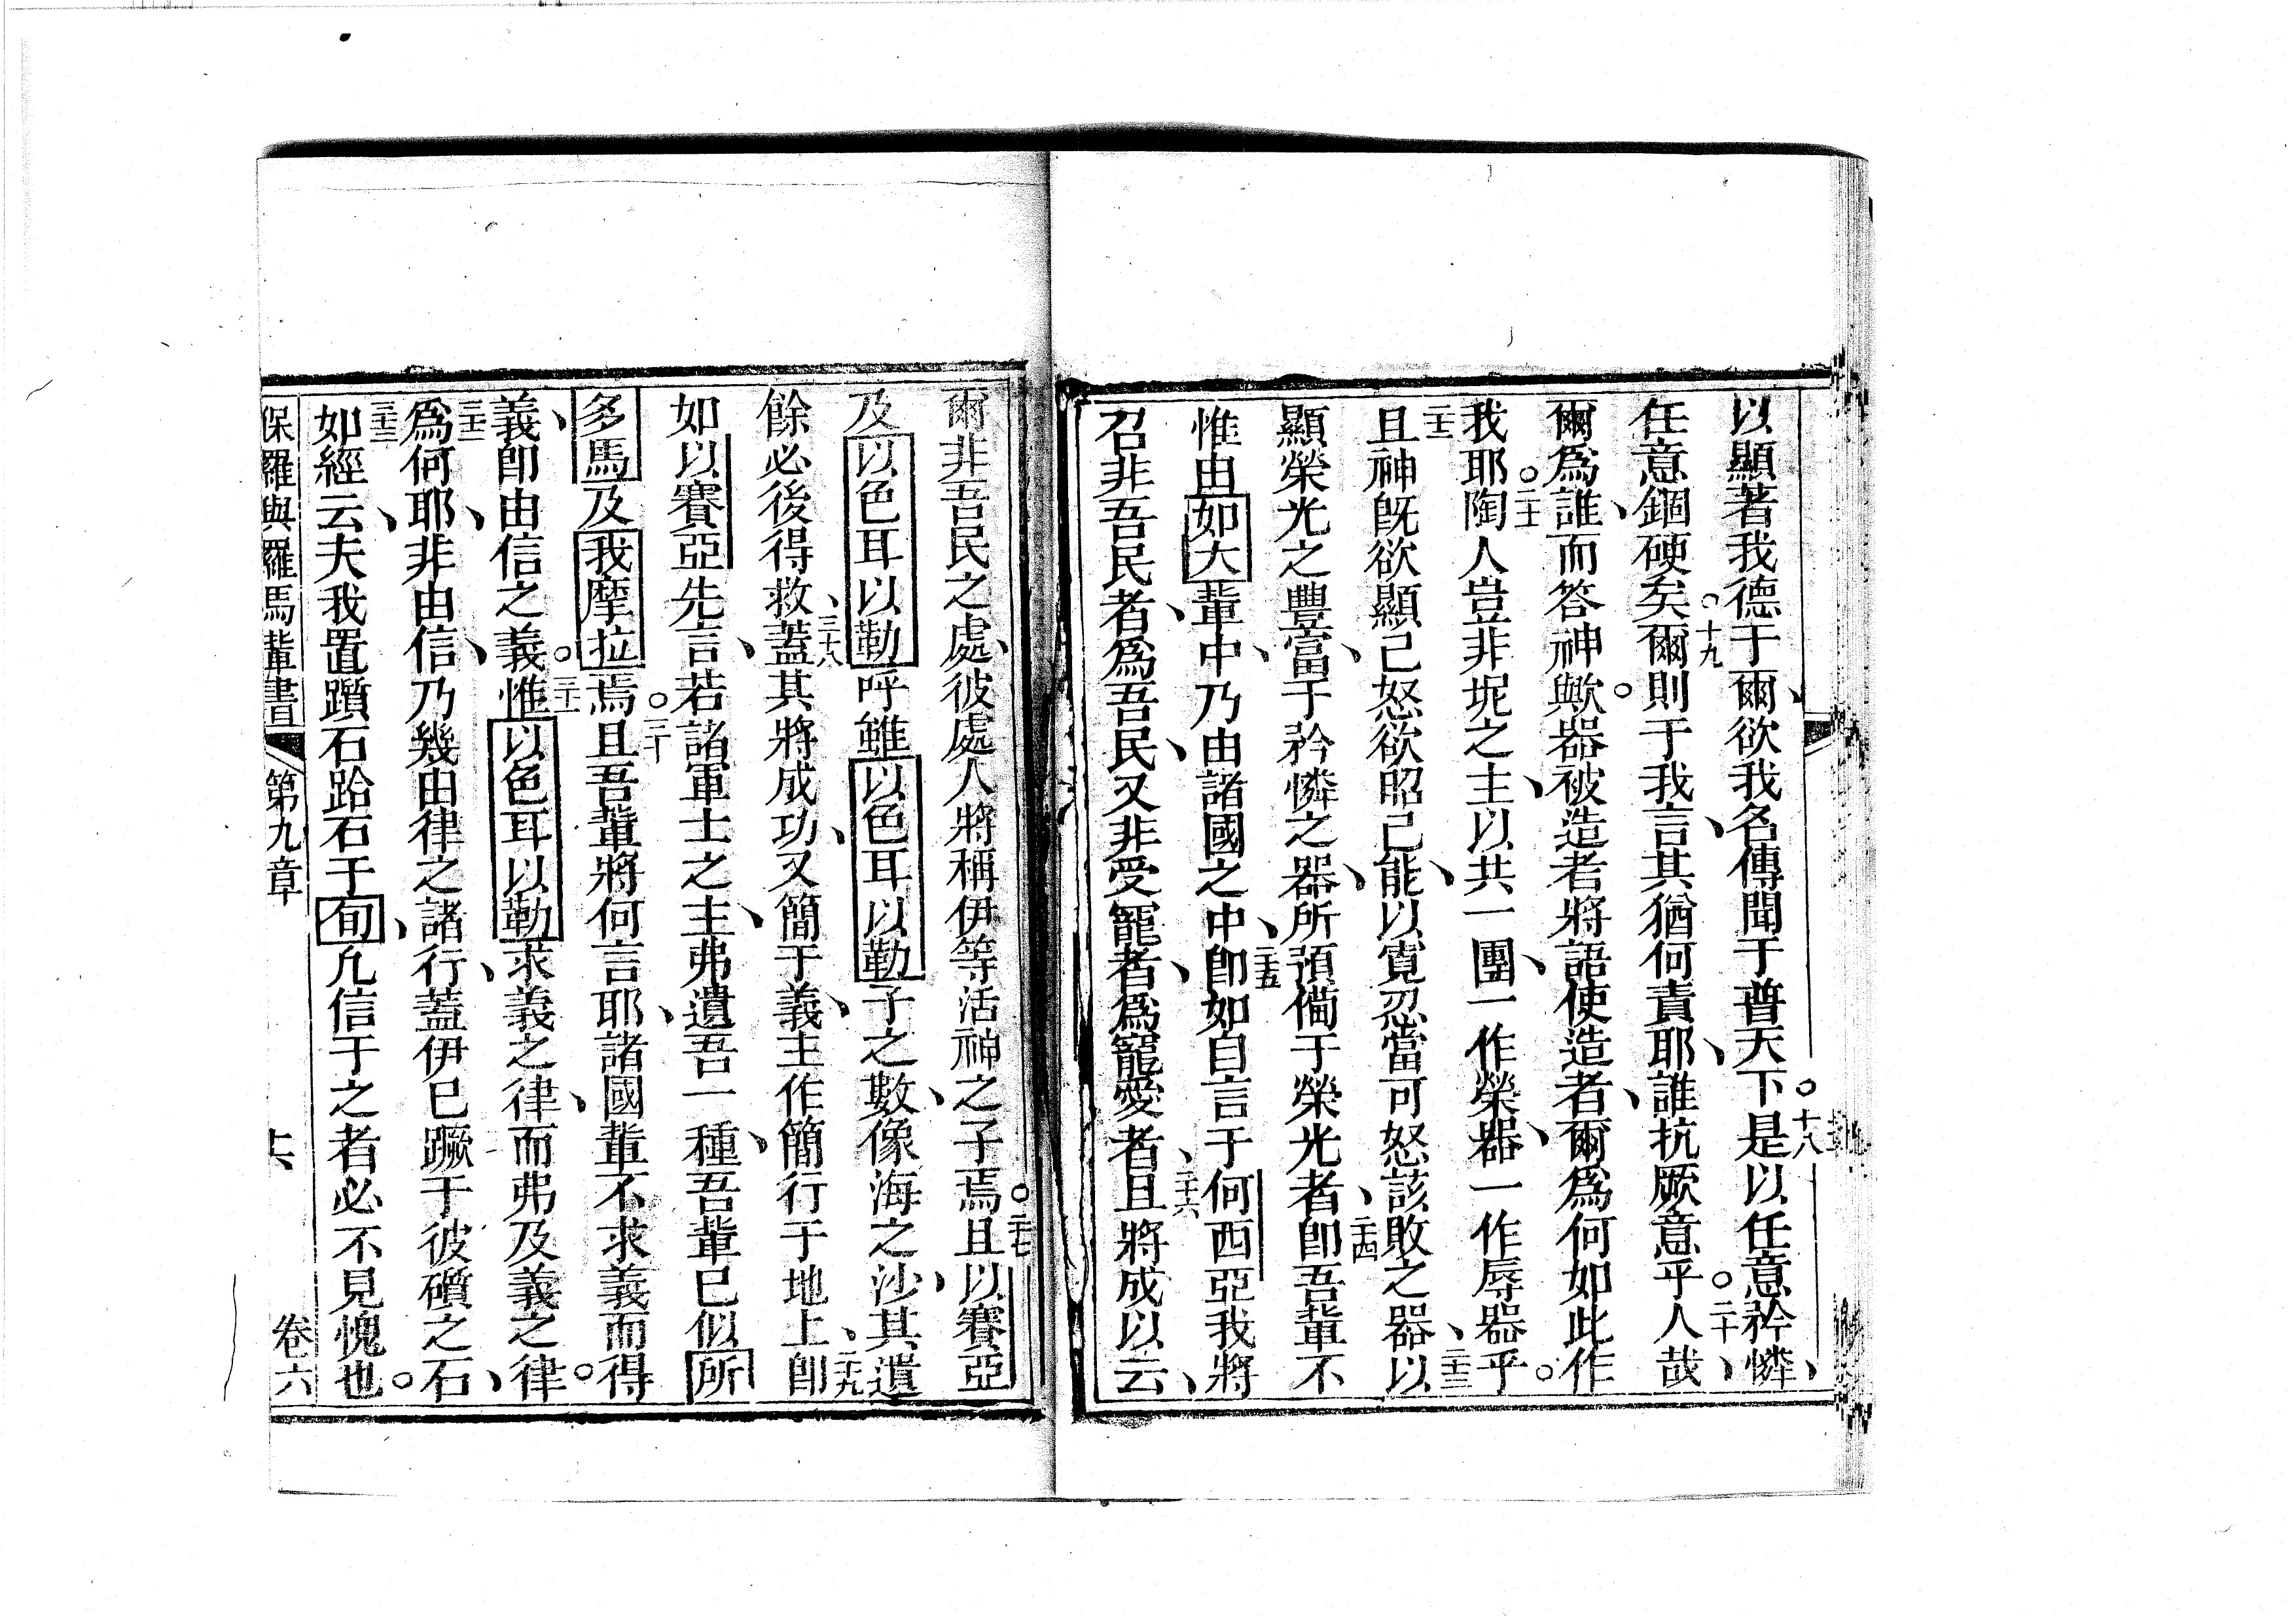 以顯著我德于爾、欲我名傳聞于普天下。十八是以任意矜憐、
任意錮硬矣。十九爾則于我言、其猶何責耶、誰抗厥意乎。二十人哉、
爾爲誰、而答神歟。器被造者將語使造者、爾爲何如此作
我耶。二十一陶人豈非坭之主、以共一團、一作榮器、一作辱器乎。
二十二且神旣欲顯己怒欲昭己能、以寬忍當可怒該敗之器、二十三以
顯榮光之豐富、于矜憐之器、所預備于榮光者、二十四卽吾輩不
惟由如大輩中、乃由諸國之中、二十五卽如自言于何西亞我將
召非吾民者、爲吾民、又非受寵者、爲寵愛者、二十六且將成以云、
爾非吾民之處、彼處人將稱伊等活神之子焉。二十七且以賽亞
及以色耳以勒呼雖以色耳以勒子之數、像海之沙、其遺
餘必後得救、二十八蓋其將成功、又簡于義、主作簡行于地上、二十九卽
如以賽亞先言、若諸軍士之主、弗遺吾一種、吾輩已似所
多馬及我摩拉焉。三十且吾輩將何言耶、諸國輩不求義而得
義、卽由信之義。三十一惟以色耳以勒求義之律、而弗及義之律。
三十二爲何耶、非由信、乃幾由律之諸行、蓋伊已蹶于彼礩之石、
三十三如經云、夫我置躓石跲石于旬、凢信于之者必不見愧也。
保羅與羅馬輩書 第九章 十六 卷六